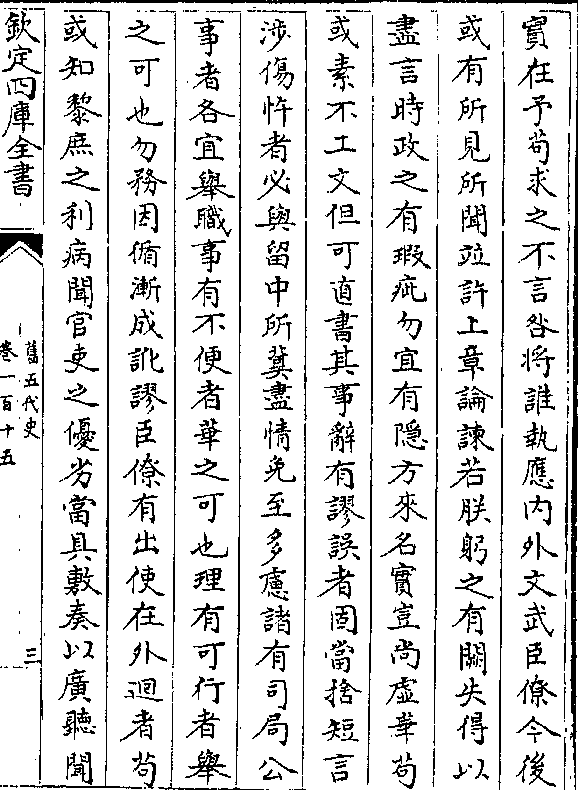 實在予苟求之不言咎將誰執應内外文武臣僚今後
或有所見所聞竝許上章論諫若朕躬之有闕失得以
盡言時政之有瑕疵勿宜有隠方來名實豈尚虛華苟
或素不工文但可直書其事辭有謬誤者固當捨短言
涉傷忤者必與留中所冀盡情免至多慮諸有司局公
事者各宜舉職事有不便者革之可也理有可行者舉
之可也勿務因循漸成訛謬臣僚有出使在外迴者苟
或知黎庶之利病聞官吏之優劣當具敷奏以廣聽聞
欽定四庫全書
舊五代史
卷一百十五
三